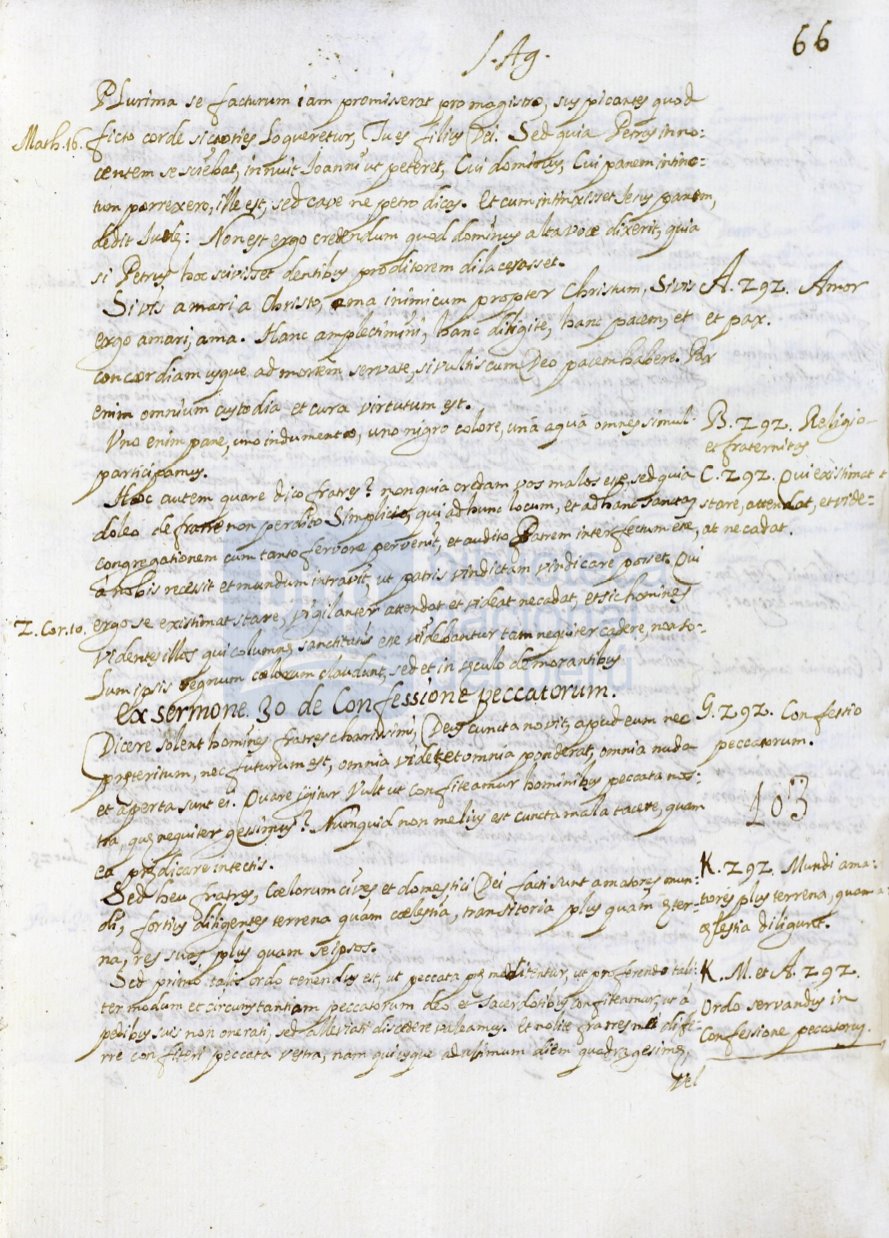 66
S. Ag.
PLurima se facturum iam promisserat pro magistro, suspicantes quod
Math. 16. ficto corde sic toties loqueretur, Tu es filius Dei. Sed quia Petrus inno-
centem se sciebat, innuit Joanni ut peteret, Cui dominus, Cui panem intinc-
tum porrexero, ille est, sed cave ne petro dicas. Et cum intinxisset Jesus panem,
dedit Judę: Non est ergo credendum quod dominus alta voce dixerit, quia
si Petrus hoc scivisset dentibus proditorem dilacerasset.
Si vis amari a Christo, ama inimicum propter Christum, Si vis
A. 292. Amor
ergo amari, ama. Hanc amplectimini, hanc diligite, hanc pacem, et
et pax.
concordiam usque ad mortem servate, si vultis cum Deo pacem habere. Pax
enim omnium custodia et cura virtutum est.
Uno enim pane, uno indumento, uno nigro colore, unâ aquâ omnes simul
B. 292. Religio
et fraternitas
participamus.
Hoc autem quare dico fratres? non quia credam vos malos esse, sed quia
C. 292. Qui existimat
doleo de fratre non perdito Simplicio, qui ad hunc locum, et ad hanc sanctam
stare, attendat, et vide-
congregationem cum tanto fervore pervenit, et audito Patrem interfectum esse,
at ne cadat.
à nobis recessit et mundum intravit, ut patris vindictam vindicare posset. Qui
2. Cor. 10. ergo se existimat stare, vigilanter attendat et videat ne cadat, et sic homines
videntes illos qui columnę sanctitatis esse videbantur tam nequiter cadere, non so-
lum ipsis regnum cœlorum claudunt, sed et in sęculo demorantibus.
ex sermone. 30 de Confessione peccatorum.
Dicere solent homines fratres charissimi, Deus cuncta novit, apud eum nec
G. 292. Confessio
pręteritum, nec futurum est, omnia videt et omnia ponderat, omnia nuda
peccatorum.
et aperta sunt ei. Quare igitur Vult ut confiteamur hominibus peccata nos-
103
tra, quę nequiter gessimus? Nunquid non melius est cuncta mala tacere, quam
ea prędicare intectis.
Sed heu fratres, Cœlorum cives et domestici Dei facti sunt amatores mun-
K. 292. Mundi ama-
di, fortius diligentes terrena quam cœlestia, transitoria plus quam ęter-
tores plus terrena, quam
na, res suas, plus quam se ipsos.
cęlestia diligunt.
Sed primo talis ordo tenendus est, ut peccata pręmeditentur, ut proferendo tali-
K. M. et A. 292.
ter modum et circunstantiam peccatorum deo et sacerdotibus confiteamur, ut à
Ordo servandus in
pedibus suis non onerati, sed alleviati discedere valeamus. Et nolite fratres mei dife-
Confessione peccatorum.
rre confiteri peccata vestra, nam quicunque ad ultimum diem quadragesimę,
vel
biblioteca
nacional
del perú